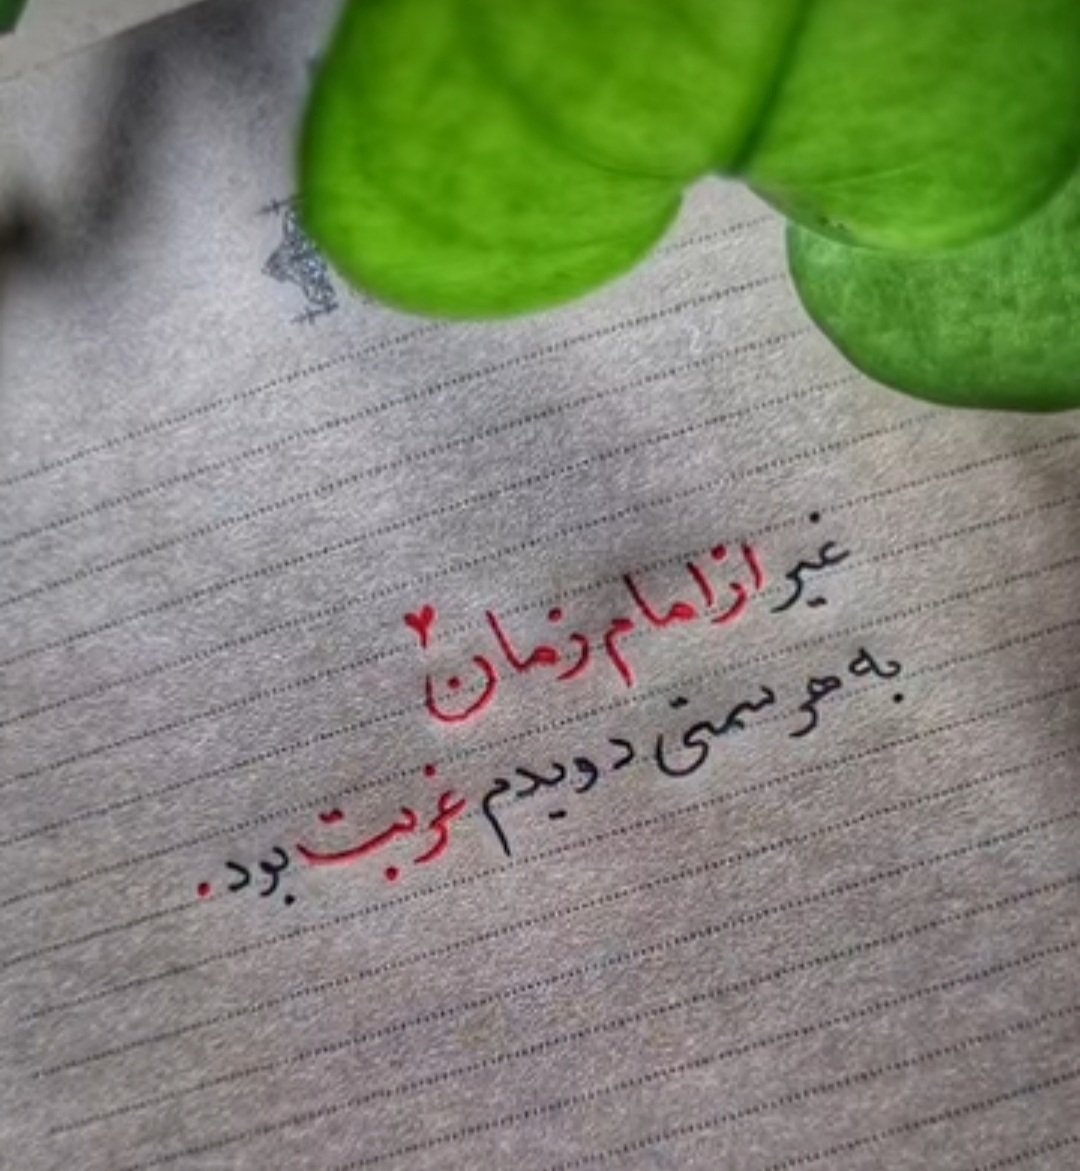 غیر از امام زمان♥
به هر سمتی دویدم غربت بود.